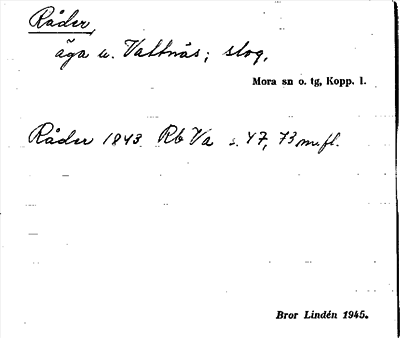 Råder,
äga u. Vattnäs; skog.
Mora sn o. tg, Kopp. l.
Råder 1843 Rb Va s. 47, 73 m.fl.
Bror Lindén 1945.